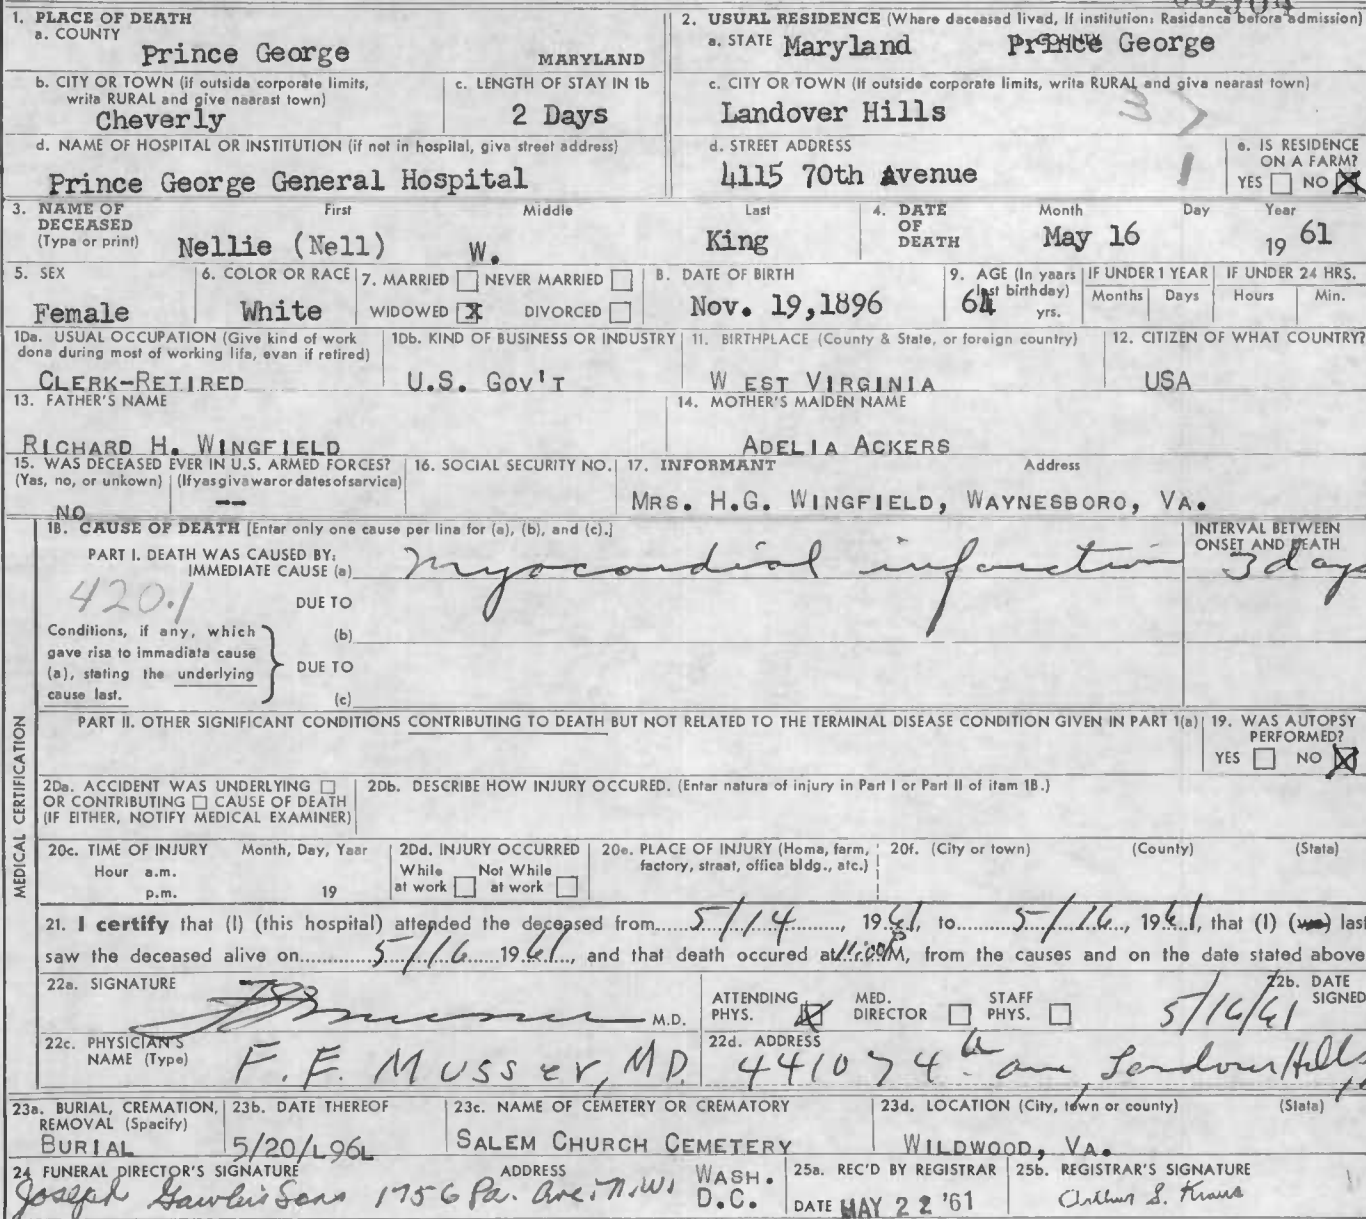 1. PLACE OF DEATH
a. COUNTY
Prince George MARYLAND
2. USUAL RESIDENCE (Where deceased lived, If institution: Residence before admission)
a. STATE Maryland COUNTY Prince George
b. CITY OR TOWN (if outside corporate limits, write RURAL and give nearest town)
Cheverly
c. LENGTH OF STAY IN 1b
2 Days
c. CITY OR TOWN (If outside corporate limits, write RURAL and give nearest town)
Landover Hills
d. NAME OF HOSPITAL OR INSTITUTION (if not in hospital, give street address)
Prince George General Hospital
d. STREET ADDRESS
4115 70th Avenue
e. IS RESIDENCE ON A FARM?
YES NO X
3. NAME OF DECEASED (Type or print)
First Middle Last
Nellie (Nell) W. King
4. DATE OF DEATH
Month Day Year
May 16 19 61
5. SEX
Female
6. COLOR OR RACE
White
7. MARRIED NEVER MARRIED
WIDOWED X DIVORCED
8. DATE OF BIRTH
Nov. 19,1896
9. AGE (In years last birthday)
64 yrs.
IF UNDER 1 YEAR
Months Days
IF UNDER 24 HRS.
Hours Min.
10a. USUAL OCCUPATION (Give kind of work done during most of working life, even if retired)
CLERK-RETIRED
10b. KIND OF BUSINESS OR INDUSTRY
U.S. GOV'T
11. BIRTHPLACE (County & State, or foreign country)
W EST VIRGINIA
12. CITIZEN OF WHAT COUNTRY?
USA
13. FATHER'S NAME
RICHARD H. WINGFIELD
14. MOTHER'S MAIDEN NAME
ADELIA ACKERS
15. WAS DECEASED EVER IN U.S. ARMED FORCES?
(Yes, no, or unkown) (If yes give war or dates of service)
NO --
16. SOCIAL SECURITY NO.
17. INFORMANT Address
MRS. H.G. WINGFIELD, WAYNESBORO, VA.
18. CAUSE OF DEATH [Enter only one cause per line for (a), (b), and (c).]
INTERVAL BETWEEN ONSET AND DEATH
PART I. DEATH WAS CAUSED BY:
IMMEDIATE CAUSE (a) Myocardial infarction 3 days
420.1
DUE TO
Conditions, if any, which gave rise to immediate cause (a), stating the underlying cause last.
(b)
DUE TO
(c)
PART II. OTHER SIGNIFICANT CONDITIONS CONTRIBUTING TO DEATH BUT NOT RELATED TO THE TERMINAL DISEASE CONDITION GIVEN IN PART 1(a)
19. WAS AUTOPSY PERFORMED?
YES NO X
MEDICAL CERTIFICATION
20a. ACCIDENT WAS UNDERLYING
OR CONTRIBUTING CAUSE OF DEATH
(IF EITHER, NOTIFY MEDICAL EXAMINER)
20b. DESCRIBE HOW INJURY OCCURED. (Enter nature of injury in Part I or Part II of item 18.)
20c. TIME OF INJURY Month, Day, Year
Hour a.m.
p.m. 19
20d. INJURY OCCURRED
While at work Not While at work
20e. PLACE OF INJURY (Home, farm, factory, street, office bldg., etc.)
20f. (City or town) (County) (State)
21. I certify that (I) (this hospital) attended the deceased from 5/14, 1961, to 5/16, 1961, that (I) (we) last
saw the deceased alive on 5/16 1961, and that death occured at 11:00 P M, from the causes and on the date stated above
22a. SIGNATURE
M.D.
ATTENDING PHYS. X MED. DIRECTOR STAFF PHYS.
22b. DATE SIGNED
5/16/61
22c. PHYSICIAN'S NAME (Type)
F. E. Musser, MD.
22d. ADDRESS
4410 74th ave, Landover Hills
23a. BURIAL, CREMATION, REMOVAL (Specify)
BURIAL
23b. DATE THEREOF
5/20/L96L
23c. NAME OF CEMETERY OR CREMATORY
SALEM CHURCH CEMETERY
23d. LOCATION (City, town or county) (State)
WILDWOOD, VA.
24 FUNERAL DIRECTOR'S SIGNATURE ADDRESS
Joseph Gawler's Sons 1756 Pa. Ave. N.W. WASH. D.C.
25a. REC'D BY REGISTRAR
DATE MAY 22 '61
25b. REGISTRAR'S SIGNATURE
Arthur S. Kraus